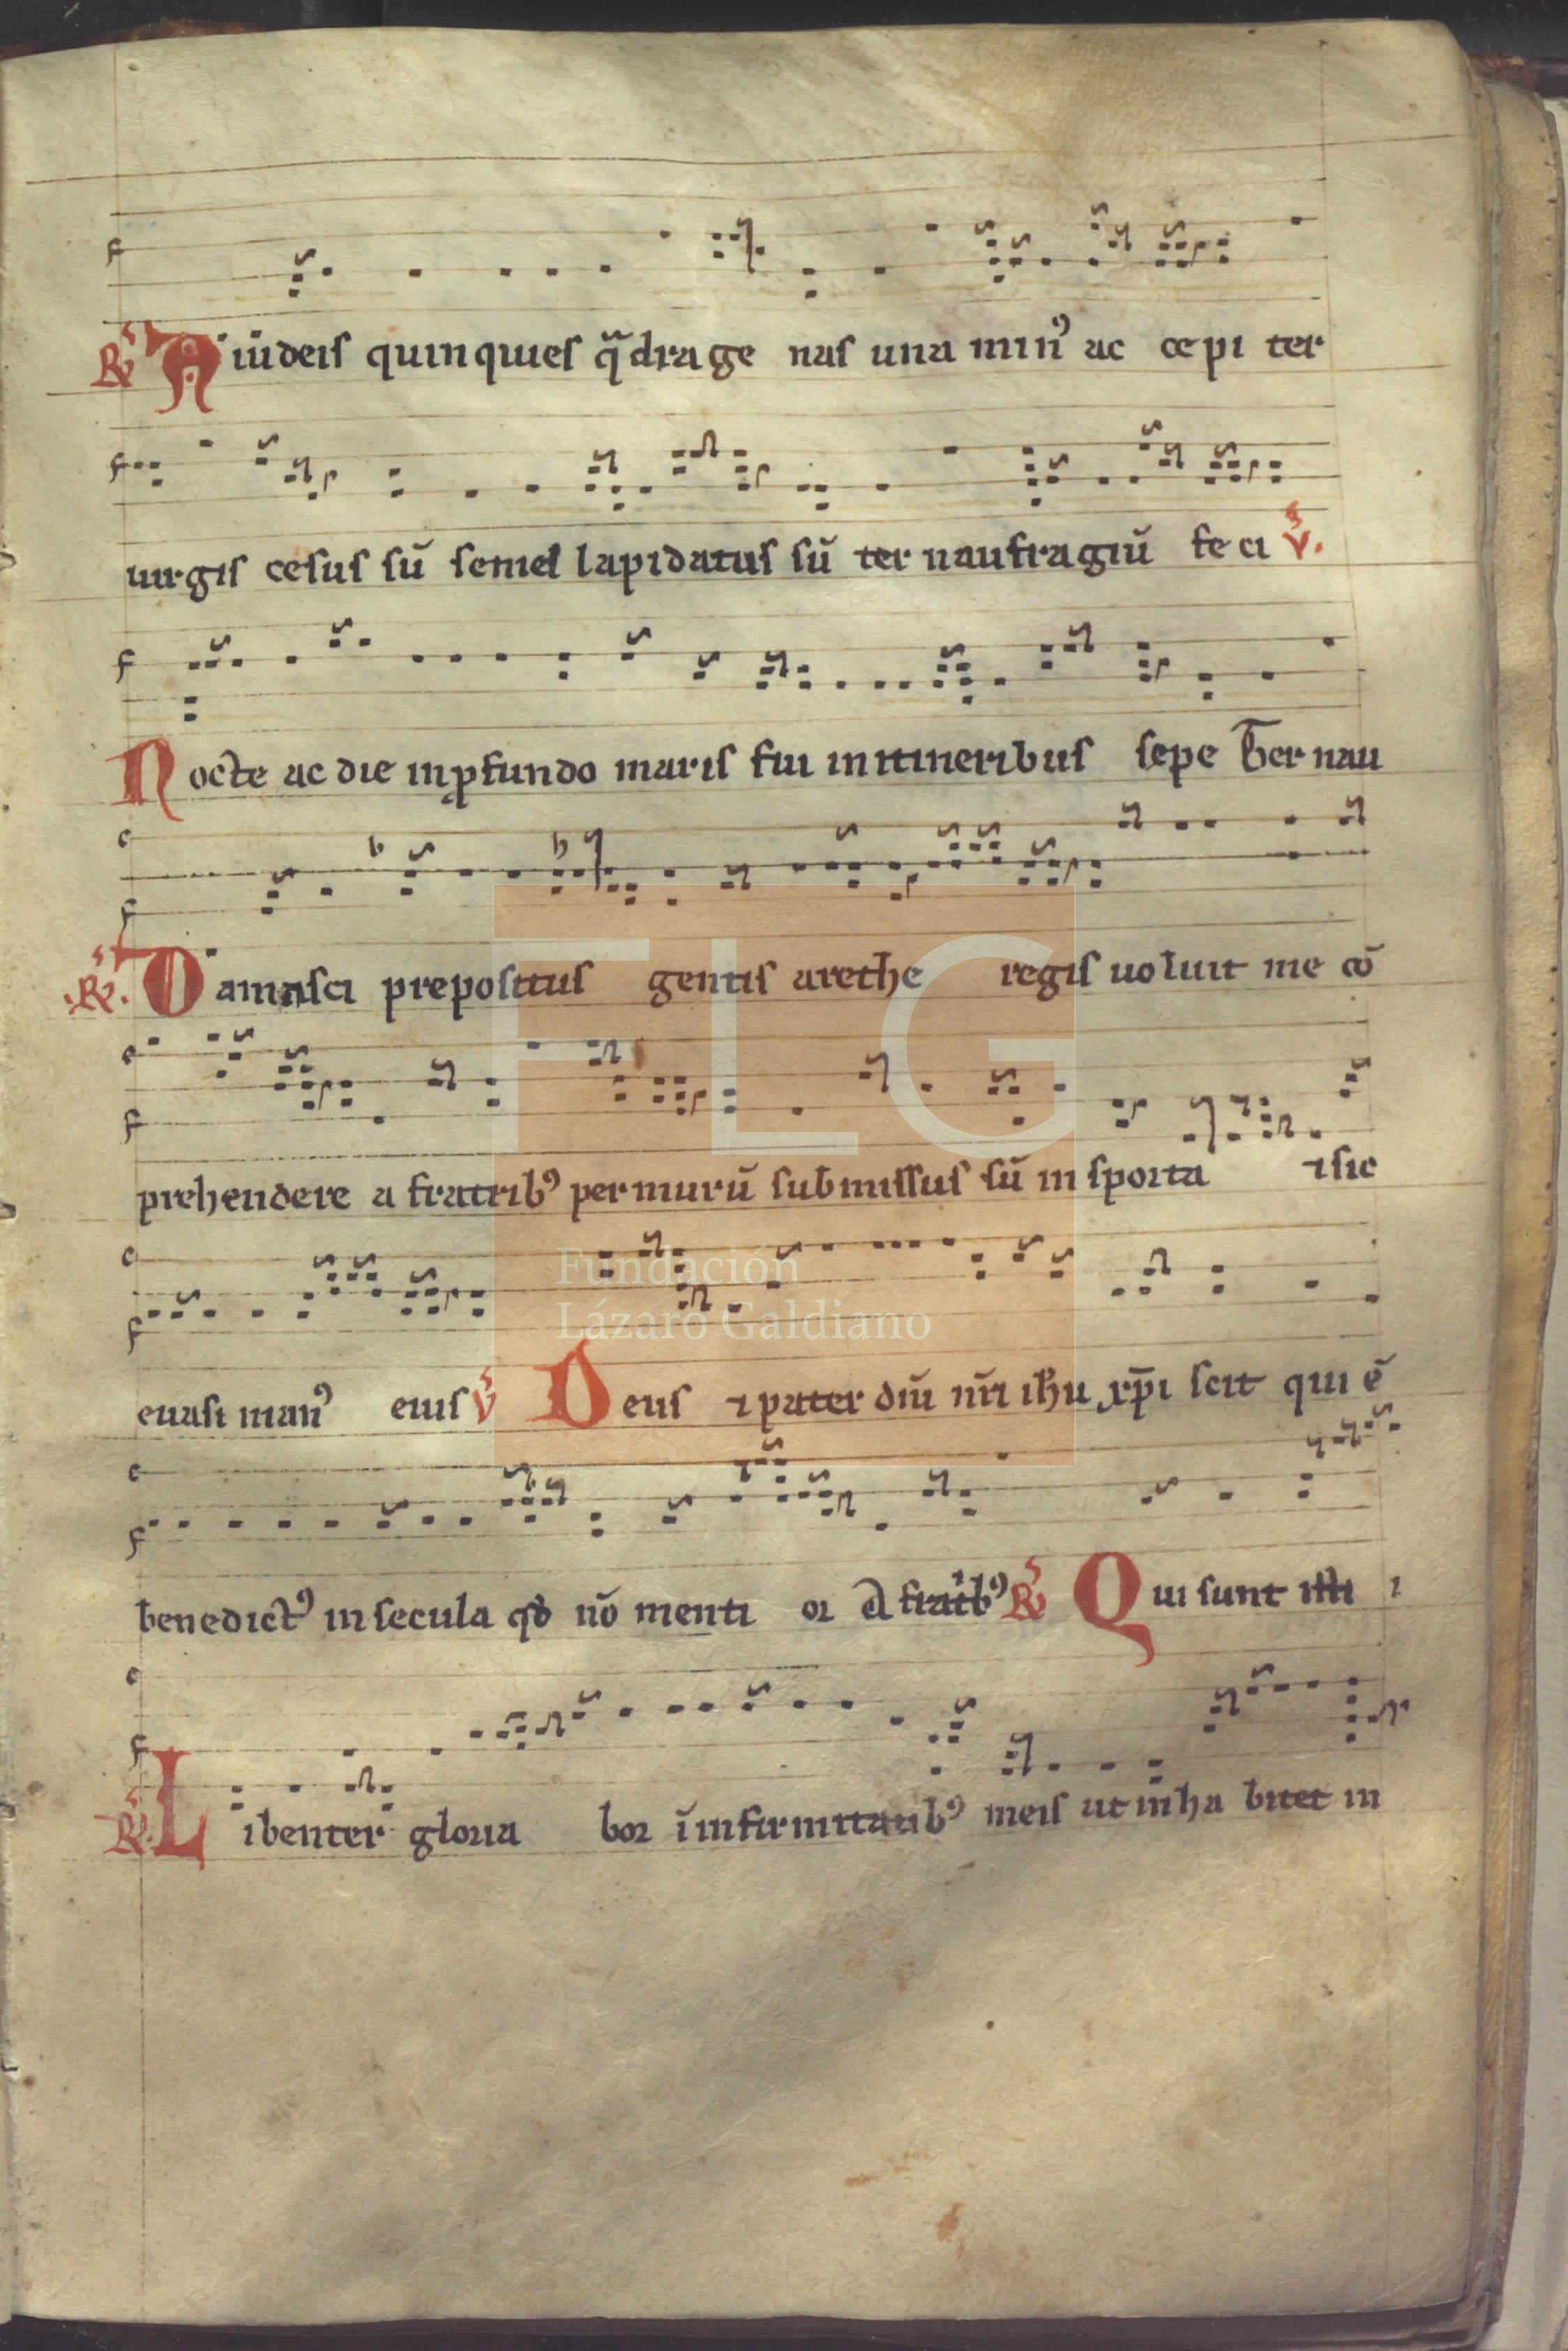 ℟ A iudeis quinquies q̃drage nas una minꝰ ac cepi ter
uirgis cesus sũ semel lapidatus sũ ter naufragiũ feci ℣.
Nocte ac die in ꝓfundo maris fui in itineribus sepe Ƀ Ter nau
℟. Damasci prepositus gentis arethe regis uoluit me cõ
prehendere a fratribꝰ per murũ submissus sũ in sporta ⁊ sic
euasi manꝰ eius ℣ Deus ⁊ pater dñi nr̃i ihu xp̃i scit qui ẽ
benedictꝰ in secula qđ nõ menti or A fratribꝰ ℟ Qui sunt isti
℟. Libenter gloria bor ĩ infirmitatibꝰ meis ut inha bitet in
FLG
Fundación
Lázaro Galdiano